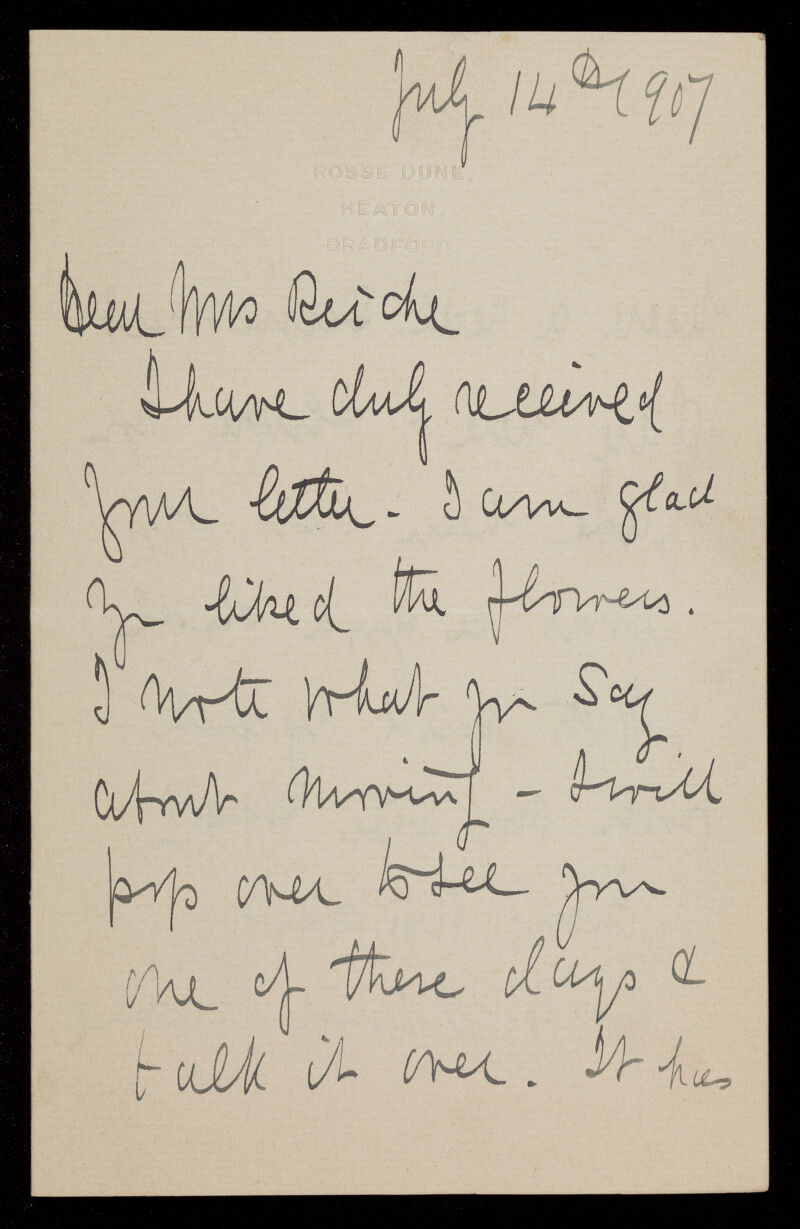 July 14th 1907
ROSSE DUNE,
HEATON,
BRADFORD
Dear Mrs Reiche
I have duly received
your letter - I am glad
you liked the flowers.
I note what you say
about moving - I will
pop over to see you
one of these days &
talk it over. It has